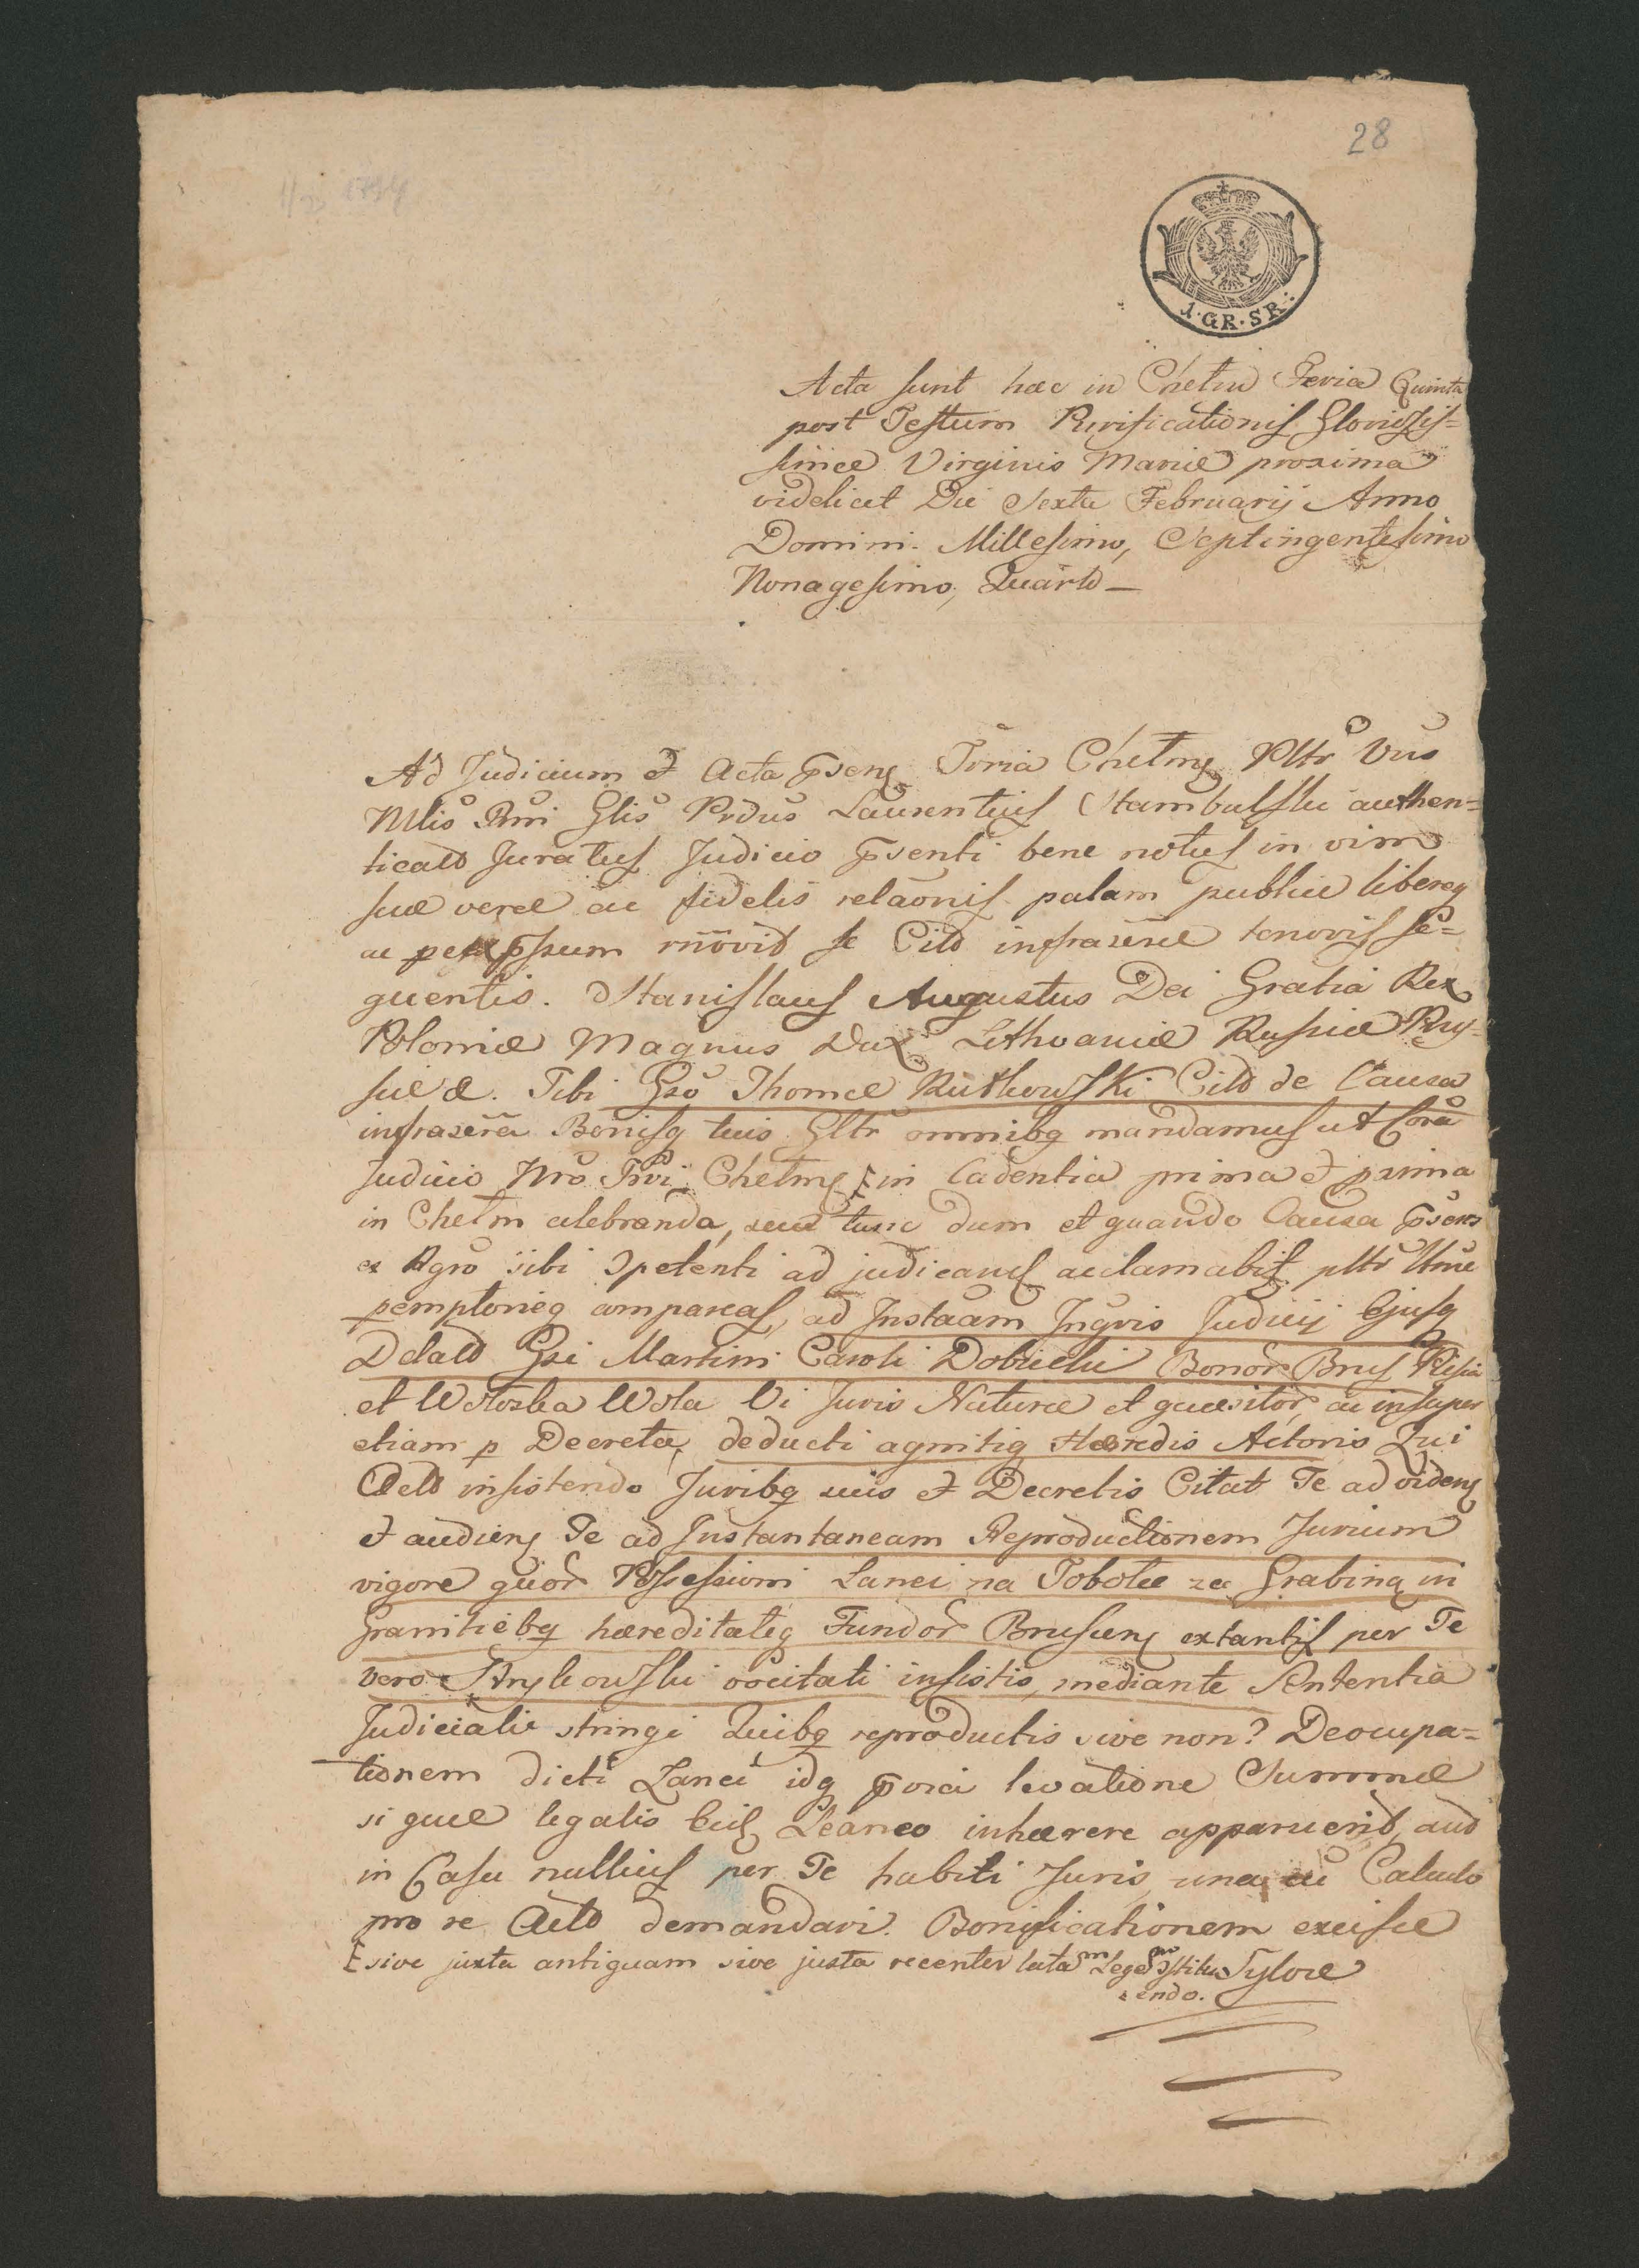 28
1794
1.GR.SR.
Acta sunt hæc in Chełm Feria Quinta
post Festum Purificationis Gloriosis=
simæ Virginis Mariæ proxima
videlicet Die Sexta Februarij Anno
Domini Millesimo, Septingentesimo
Nonagesimo, Quarto —
Ad Judicium et Acta pñsens Tõria Chelmẽ Pltr Vus
Mlis Rni Glis Prdus Laurentius Stambulski authen=
ticato Juratus Judicio pñsenti bene notus in vim
suæ veræ ac fidelis relaõnis palam publice libereq
ac per expssum rñovit se Citõ infrascræ tenoris se=
quentis. Stanislaus Augustus Dei Gratia Rex
Poloniæ Magnus Dux Lithvaniæ Russiæ Prus=
siæ &. Tibi Gso Thomæ Rutkowski Citõ de Causa
infrascra Bonisq tuis Gltr omnibq mandamus ut Cora
Judicio Nro Trri Chelmẽ in Cadentia prima et prima
in Chełm celebranda, seu tunc dum et quando Causa pñsens
ex Rgro sibi Spetenti ad judicand acclamabit pltr
pemptorieq compareas, ad Instaam Ingris Judicij Ejusq
Delato Gsi Martini Caroli Dobiecki Bonor Brus
et Wołoska Wola Vi Juris Naturæ et quæsitor, ac insuper
etiam p Decreta, deducti agnitiq Hæredis Actoris Qui
insistendo Juribq suis et Decretis Citat Te ad videnẽ
et audienẽ Te ad Instantaneam Reproductionem Jurium
vigore quor Possessioni Lanei na Tobole za Grabiną in
Granitiebq hæreditateq Fundor Brusienẽ extantis per Te
vero Strykowski vocitati insistis, mediante Sententia
Judiciali stringi Quibq reproductis sive non? Deocupa=
tionem dicti Lanei idq pvia levatione Summæ
si quæ legalis Laneo inhærere apparuerit, aut
in Casu nullius per Te habiti Juris una cu Calculo
pro re demandari. Bonificationem excisæ
sive juxta antiquam sive juxta recenter lata Lege Sylvæ
endo.